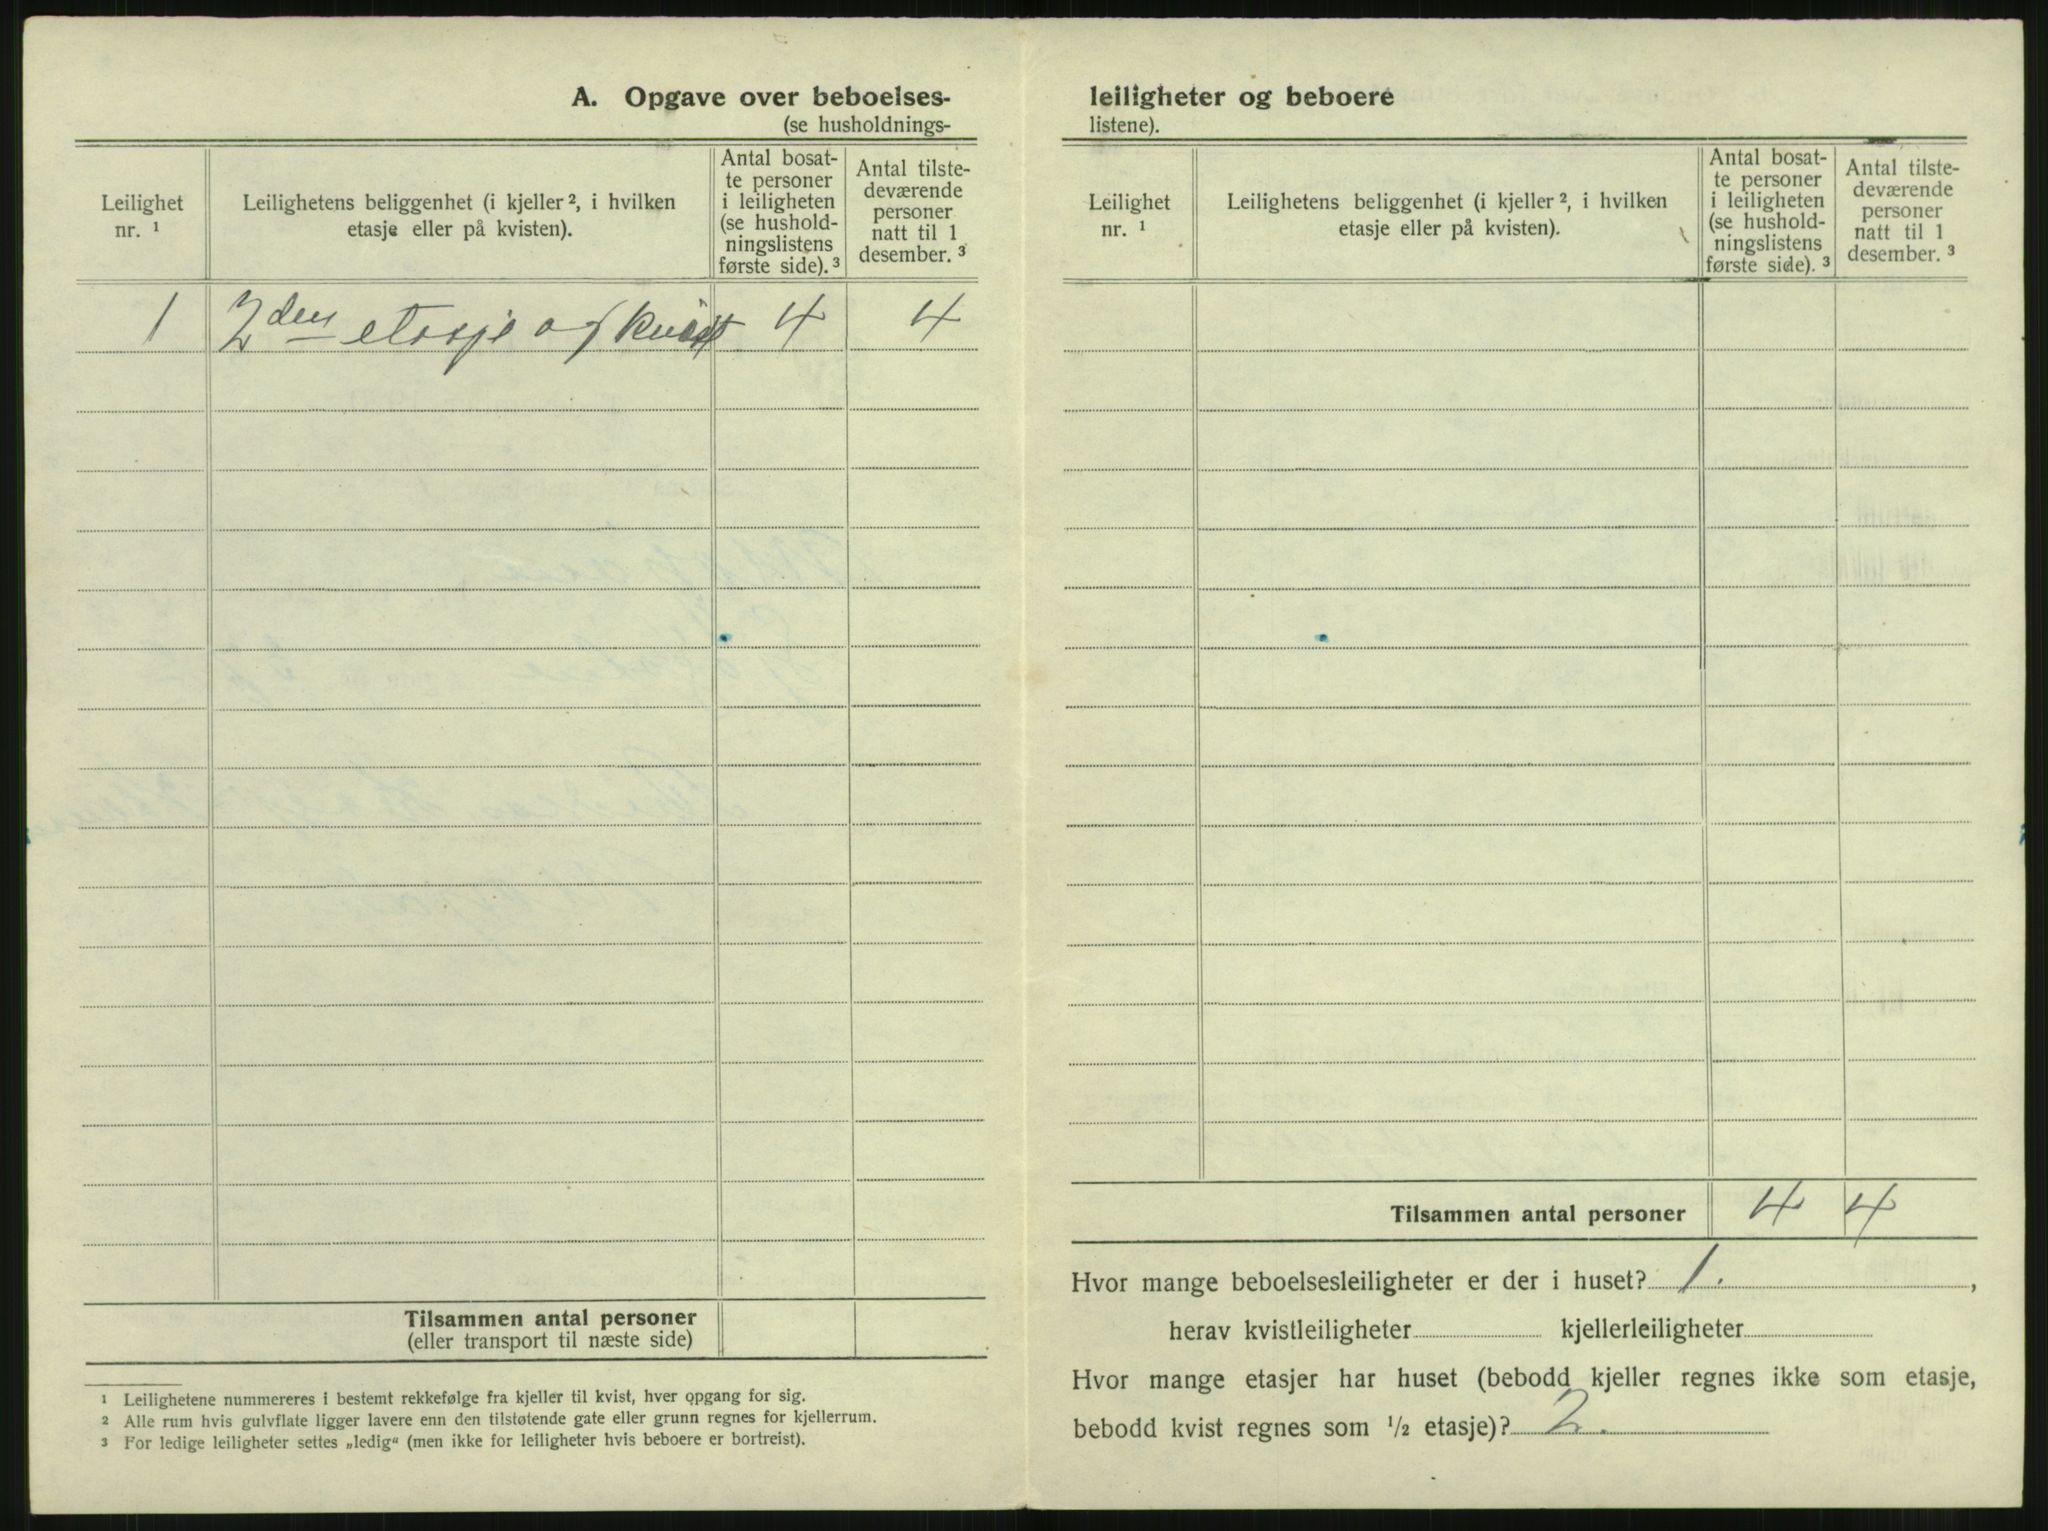 A. Opgave over beboelses-
(se husholdnings-
Leilighet
nr. ¹
Leilighetens beliggenhet (i kjeller ², i hvilken
etasje eller på kvisten).
Antal bosat-
te personer
i leiligheten
(se hushold-
ningslistens
første side). ³
Antal tilste-
deværende
personer
natt til 1
desember. ³
1 2den etasje og kvist 4 4
Tilsammen antal personer
(eller transport til næste side)
¹ Leilighetene nummereres i bestemt rekkefølge fra kjeller til kvist, hver opgang for sig.
² Alle rum hvis gulvflate ligger lavere enn den tilstøtende gate eller grunn regnes for kjellerrum.
³ For ledige leiligheter settes „ledig“ (men ikke for leiligheter hvis beboere er bortreist).
leiligheter og beboere
listene).
Leilighet
nr. ¹
Leilighetens beliggenhet (i kjeller ², i hvilken
etasje eller på kvisten).
Antal bosat-
te personer
i leiligheten
(se hushold-
ningslistens
første side). ³
Antal tilste-
deværende
personer
natt til 1
desember. ³
Tilsammen antal personer 4 4
Hvor mange beboelsesleiligheter er der i huset? 1. ,
herav kvistleiligheter kjellerleiligheter
Hvor mange etasjer har huset (bebodd kjeller regnes ikke som etasje,
bebodd kvist regnes som ½ etasje)? 2.